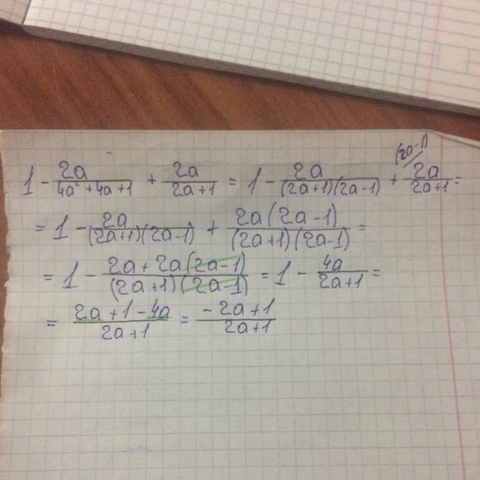 1 - 2a/(4a² + 4a + 1) + 2a/(2a+1) = 1 - 2a/((2a+1)(2a-1)) + (2a-1) 2a/(2a+1) =
= 1 - 2a/((2a+1)(2a-1)) + 2a(2a-1)/((2a+1)(2a-1)) =
= 1 - (2a + 2a(2a-1))/((2a+1)(2a-1)) = 1 - 4a/(2a+1) =
= (2a + 1 - 4a)/(2a+1) = (-2a+1)/(2a+1)